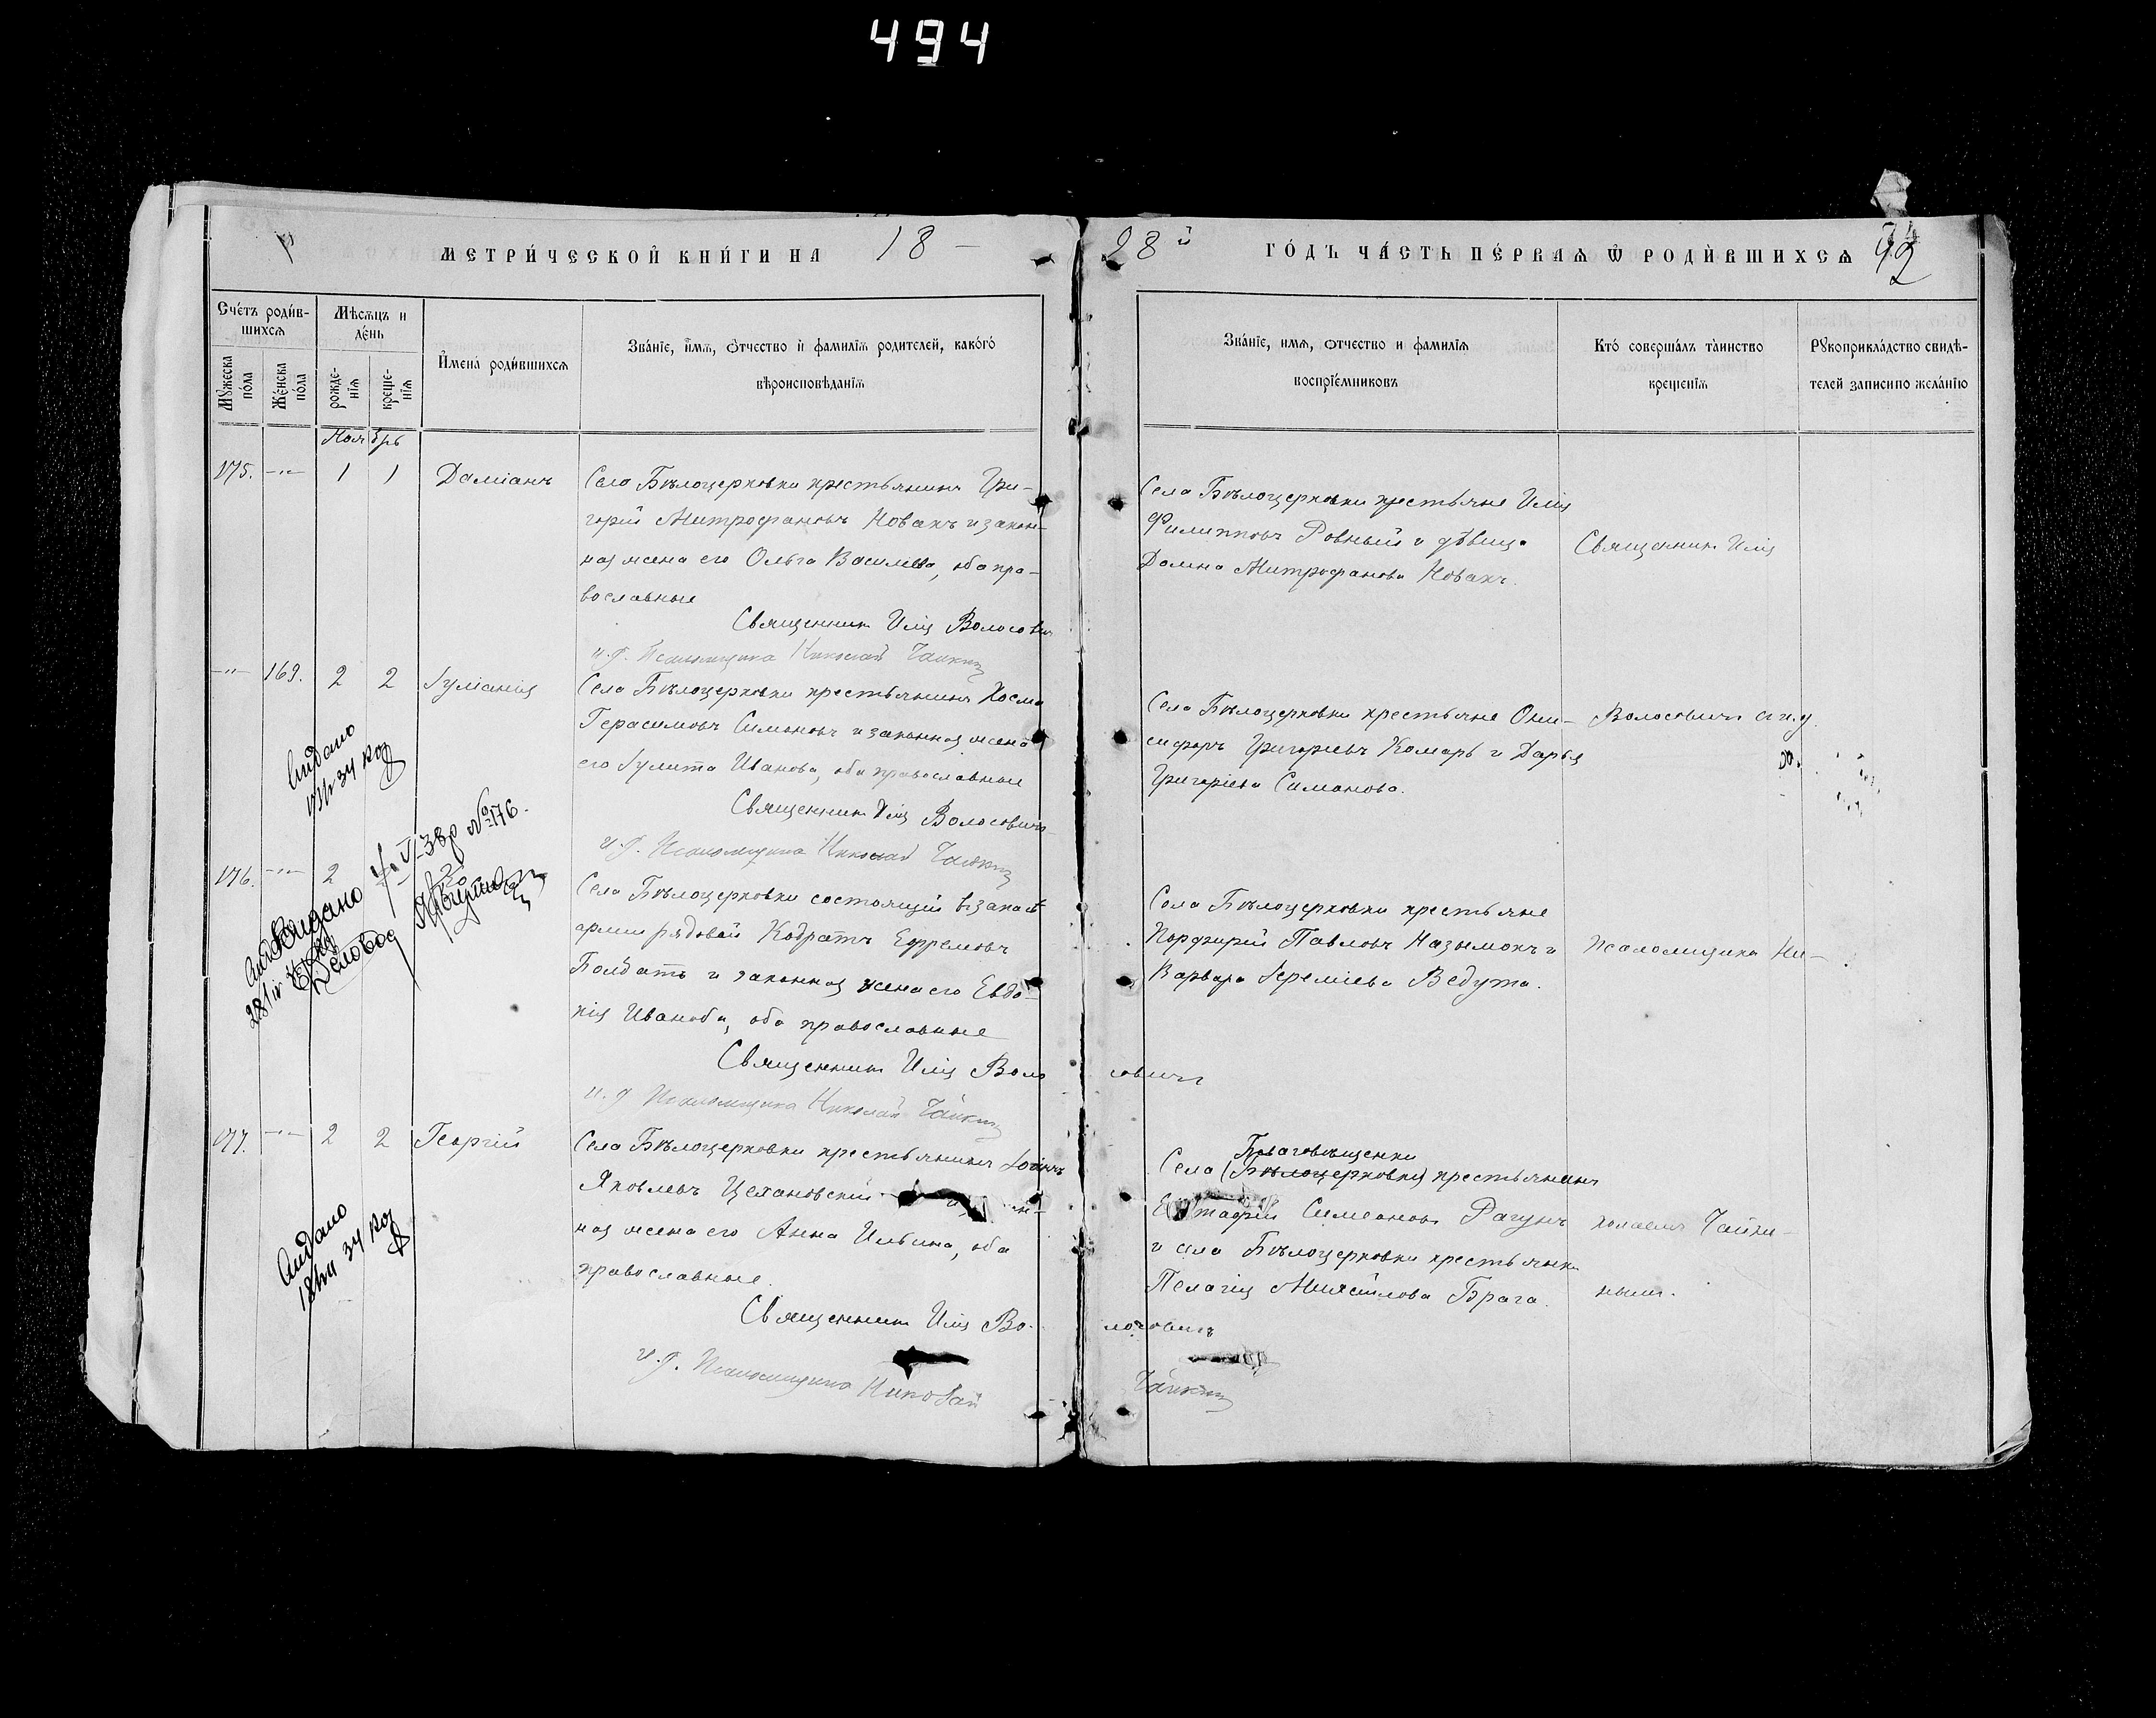 494
МЕТРИ́ЧЕСКОЙ КНИ́ГИ НА 18 —
28й ГО́ДЪ ЧА́СТЬ ПЕ́РВАѦ Ѿ РОДИ́ВШИХСѦ
92
Сче́тъ роди́в-
шихсѧ
Мѣсѧцъ и
де́нь
И҆мена̀ роди́вшихсѧ
Зва́нїе, и҆́мѧ, ѻ҆́тчество и҆ фамилїѧ родителей, како́гѡ
вѣроисповѣданїѧ
Мꙋжеска
по́ла
Же́нска
по́ла
рожде-
нїѧ
креще-
нїѧ
Зва́нїе, имѧ, ѻтчество и фамилїѧ
воспрїе́мниковъ
Кто̀ соверша́лъ та̀инство
креще́нїѧ
Рꙋкоприкла́дство свидѣ-
телей записи по жела́нїю
Ноябрь
175. -"- 1 1 Даміанъ
Села Бѣлоцерковки крестьянинъ Гри-
горій Митрофановъ Новакъ и закон-
ная жена его Ольга Васильева, оба пра-
вославные
Священникъ Илія Волосович
и. д. Псаломщика Николай Чайкин
Села Бѣлоцерковки крестьяне Илія
Филипповъ Ровный и дѣвица
Домна Митрофанова Новакъ.
Священник Илія
-"- 169. 2 2 Іуліанія
Села Бѣлоцерковки крестьянинъ Косма
Герасимовъ Симоновъ и законная жена
его Іулита Иванова, оба православные
Священник Илія Волосовичъ
и. д. Псаломщика Николай Чайкин
Села Бѣлоцерковки крестьяне Они-
сифоръ Григорьевъ Комарь и Дарья
Григоріева Симонова.
Волосовичъ и и. д.
34 год
Видано
V-38р №176.
Діловод
176. -"- 2
Села Бѣлоцерковки состоящій в запасѣ
арміи рядовой Кодратъ Ефремовъ
и законная жена его Евдо-
кія Иванова, оба православные
Священник Илія Воло
совичъ
и. д. Псаломщика Николай Чайкин
Села Бѣлоцерковки крестьяне
Порфирій Павловъ Назымокъ и
Варвара Іереміева Ведута.
Псаломщика Ни-
177. -"- 2 2 Георгій
Села Бѣлоцерковки крестьянинъ Іоаннъ
Яковлевъ Цехановскій
ная жена его Анна Ильина, оба
православные.
Священник Илія Во-
лосовичъ
и. д. Псаломщика Николай
Чайкин
Благовѣщенки
Села (Бѣлоцерковки) крестьянинъ
Симеоновъ Рагунъ
и села Бѣлоцерковки крестьянка
Пелагія Михайлова Брага.
колаемъ Чайки-
нымъ.
34 год